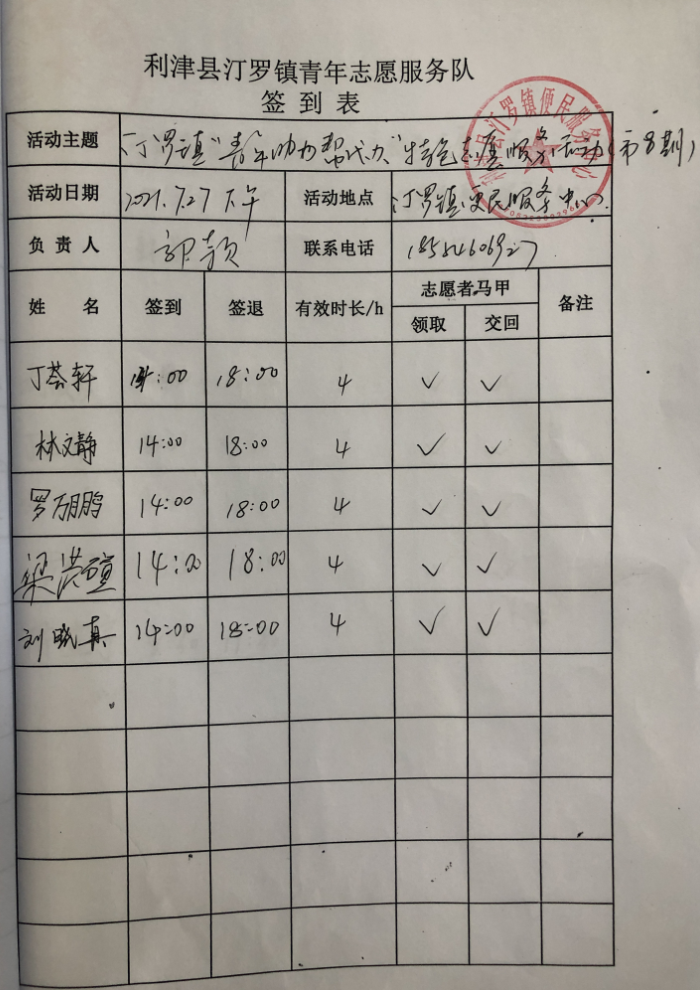 利津县汀罗镇青年志愿服务队
签到表
活动主题 汀罗镇"青年助力 帮代办"特色志愿服务活动(第8期)
活动日期 2021.7.27 下午 活动地点 汀罗镇便民服务中心
负责人 郭颖 联系电话
姓名 签到 签退 有效时长/h 志愿者马甲 备注
领取 交回
丁荟轩 14:00 18:00 4 ✓ ✓
林文静 14:00 18:00 4 ✓ ✓
罗万鹏 14:00 18:00 4 ✓ ✓
梁洪 14:00 18:00 4 ✓ ✓
刘晓真 14:00 18:00 4 ✓ ✓
利津县汀罗镇便民服务中心